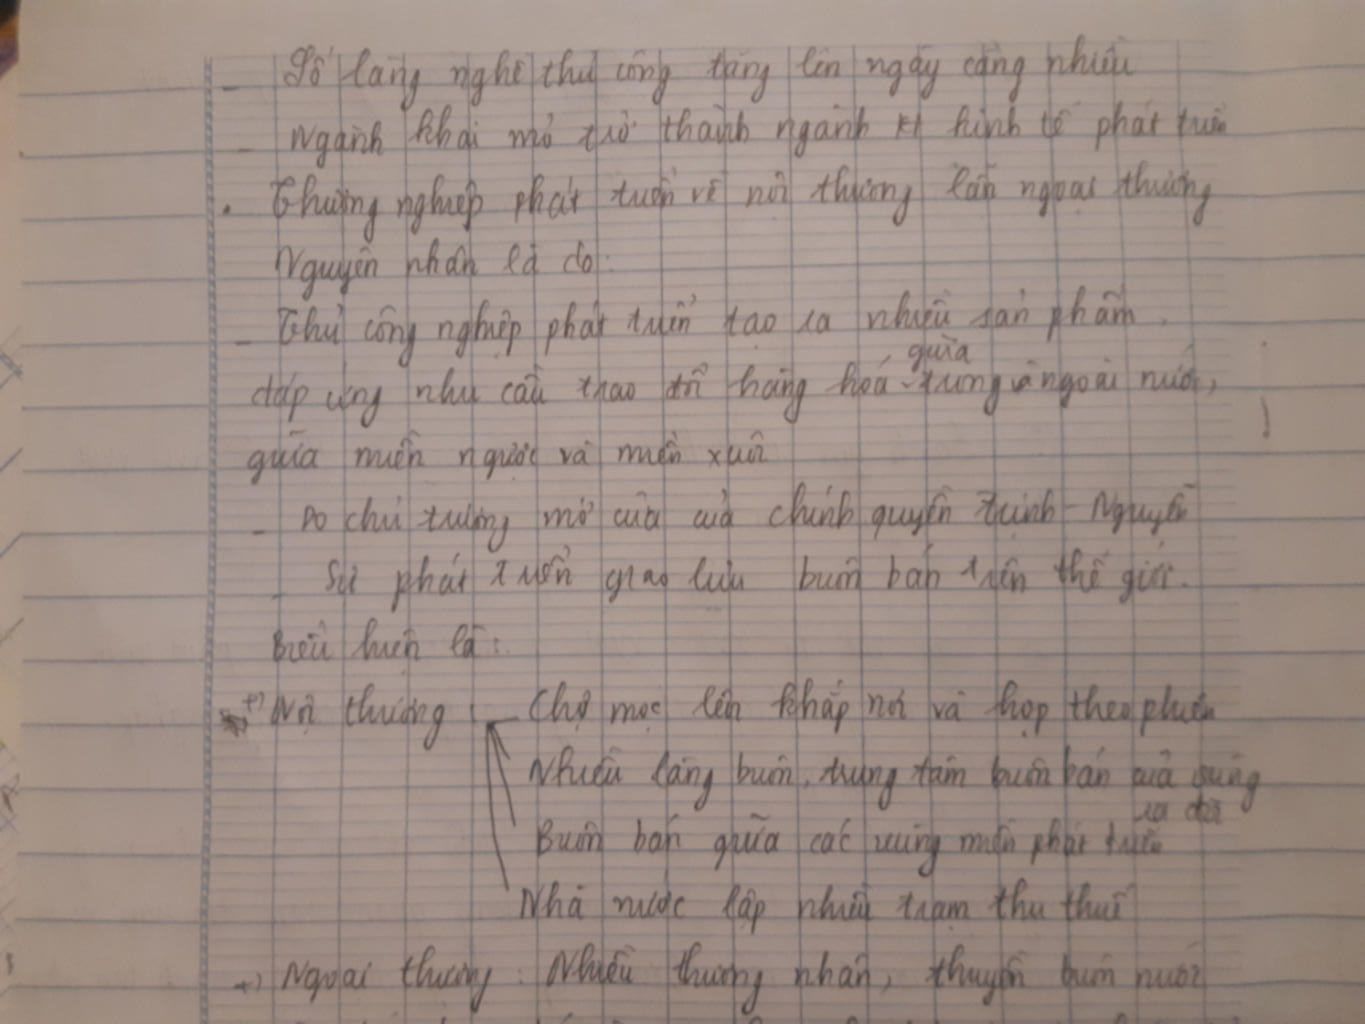 - Số làng nghề thủ công tăng lên ngày càng nhiều
- Ngành khai mỏ trở thành ngành kinh tế phát triển
. Thương nghiệp phát triển về nội thương lẫn ngoại thương
Nguyên nhân là do:
- Thủ công nghiệp phát triển tạo ra nhiều sản phẩm.
giữa
đáp ứng nhu cầu trao đổi hàng hoá trong và ngoài nước,
giữa miền ngược và miền xuôi
- Do chủ trương mở cửa của chính quyền Trịnh - Nguyễn
- Sự phát triển giao lưu buôn bán trên thế giới.
Biểu hiện là:
+) Nội thương : - Chợ mọc lên khắp nơi và họp theo phiên
Nhiều làng buôn, trung tâm buôn bán của vùng
ra đời
Buôn bán giữa các vùng miền phát triển
Nhà nước lập nhiều trạm thu thuế
+) Ngoại thương : Nhiều thương nhân, thuyền buôn nước